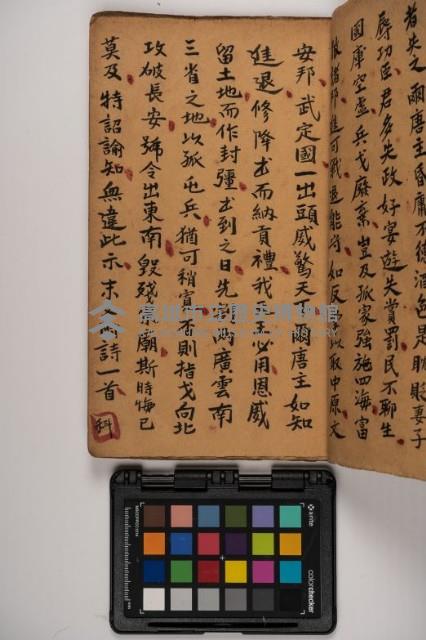 者夫之爾唐主昏庸不德酒色是耽貶妻子
辱功臣君多失政好宴遊失賞罰民不聊生
國庫空虛兵戈廢棄豈及孤家強施四海富
諸邦進可戰退能守如反以取中原文
安邦武定國一出頭威驚天下爾唐主如知
進退修降書而納貢禮我主必用恩威
留土地而作封疆書到之日先廣雲南
三省之地以孤屯兵猶可稍寬不則指戈向北
攻破長安號令出東南毀殘宗廟斯時悔已
莫及特詔諭知無違此示末詩一首
科
高雄市立歷史博物館
x-rite
colorchecker